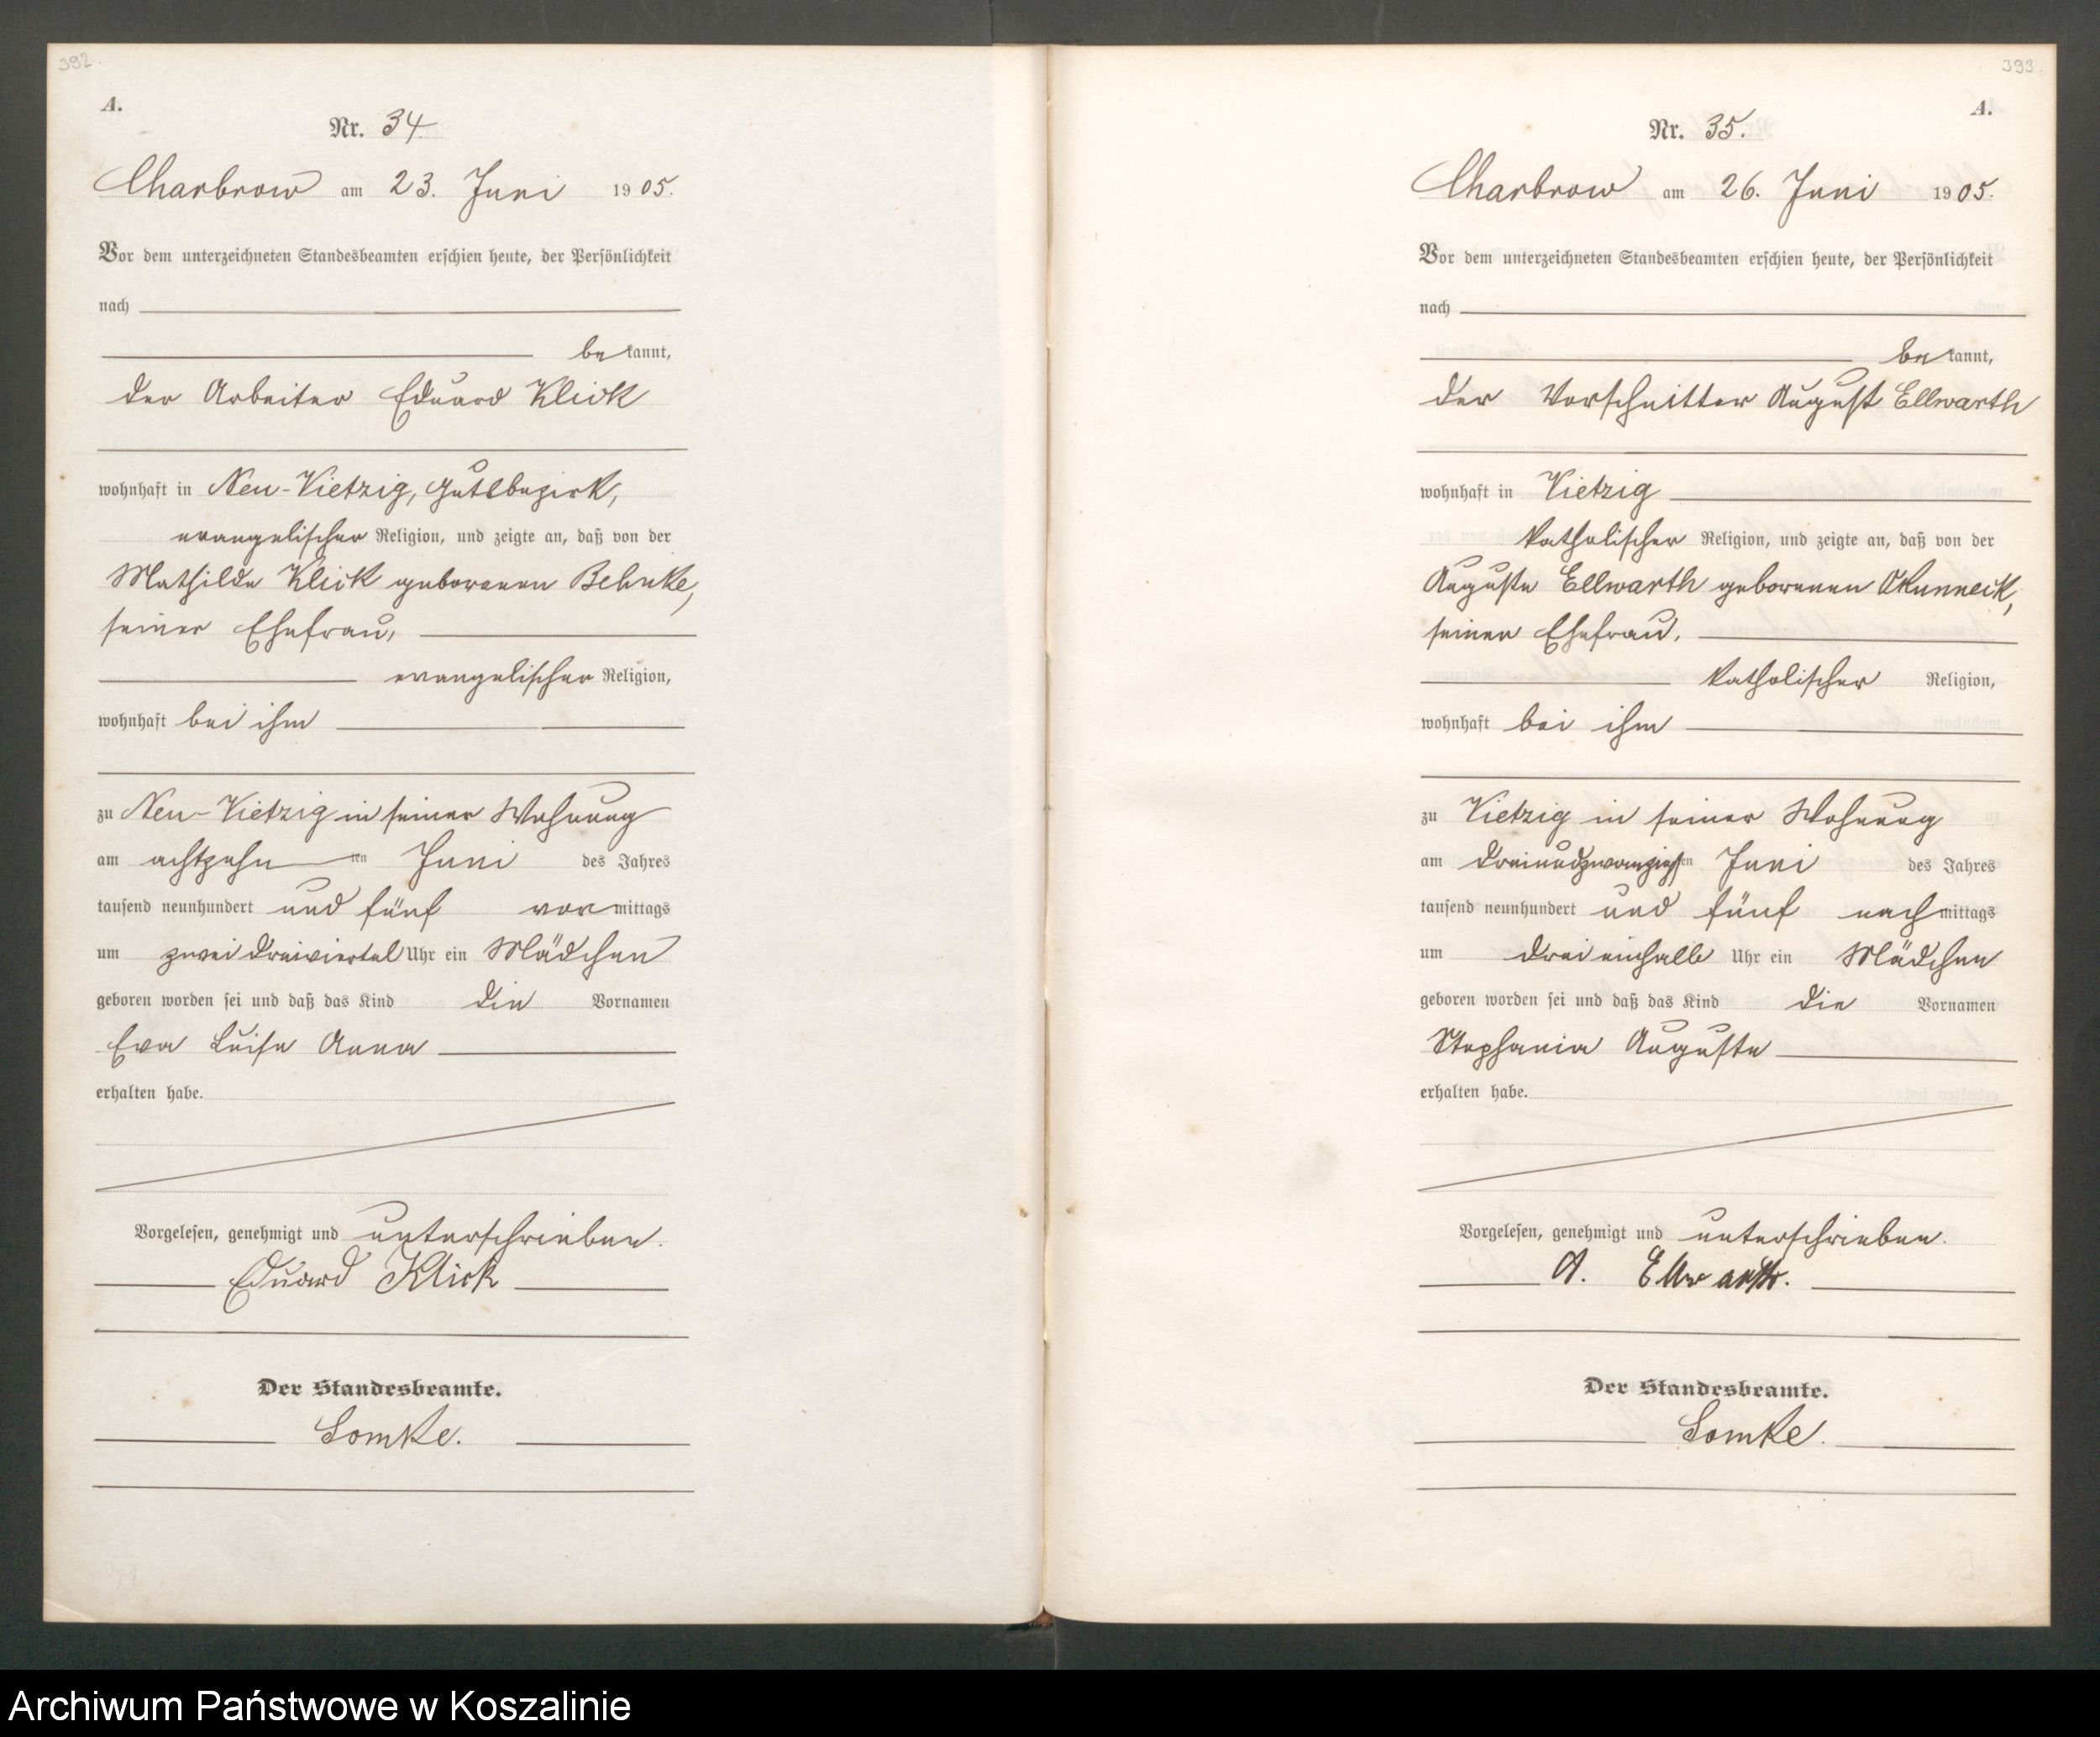 392.
A.
Nr. 34
Charbrow am 23. Juni 1905.
Vor dem unterzeichneten Standesbeamten erschien heute, der Persönlichkeit
nach
bekannt,
der Arbeiter Eduard Klick
wohnhaft in Neu-Vietzig, Gutsbezirk,
evangelischer Religion, und zeigte an, daß von der
Mathilde Klick geborenen Behnke,
seiner Ehefrau,
evangelischer Religion,
wohnhaft bei ihm
zu Neu-Vietzig in seiner Wohnung
am achtzehnten Juni des Jahres
tausend neunhundert und fünf vormittags
um zwei dreiviertel Uhr ein Mädchen
geboren worden sei und daß das Kind die Vornamen
Eva Luise Anna
erhalten habe.
Vorgelesen, genehmigt und unterschrieben.
Eduard Klick
Der Standesbeamte.
Lomke.
393.
A.
Nr. 35.
Charbrow am 26. Juni 1905.
Vor dem unterzeichneten Standesbeamten erschien heute, der Persönlichkeit
nach
bekannt,
der Vorschnitter August Ellwarth
wohnhaft in Vietzig
katholischer Religion, und zeigte an, daß von der
Auguste Ellwarth geborenen Okunneck,
seiner Ehefrau,
katholischer Religion,
wohnhaft bei ihm
zu Vietzig in seiner Wohnung
am dreiundzwanzigsten Juni des Jahres
tausend neunhundert und fünf nachmittags
um drei einhalb Uhr ein Mädchen
geboren worden sei und daß das Kind die Vornamen
Stephania Auguste
erhalten habe.
Vorgelesen, genehmigt und unterschrieben.
A. Ellwarth.
Der Standesbeamte.
Lomke.
Archiwum Państwowe w Koszalinie